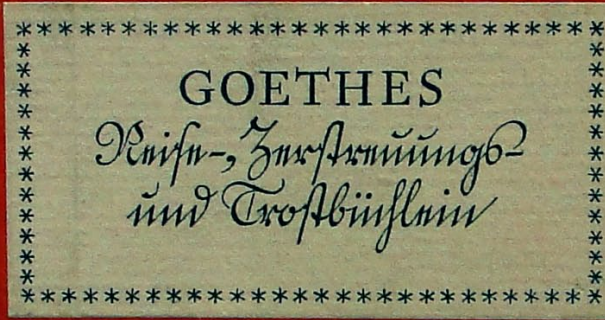 GOETHES
Reise-, Zerstreuungs-
und Trostbüchlein